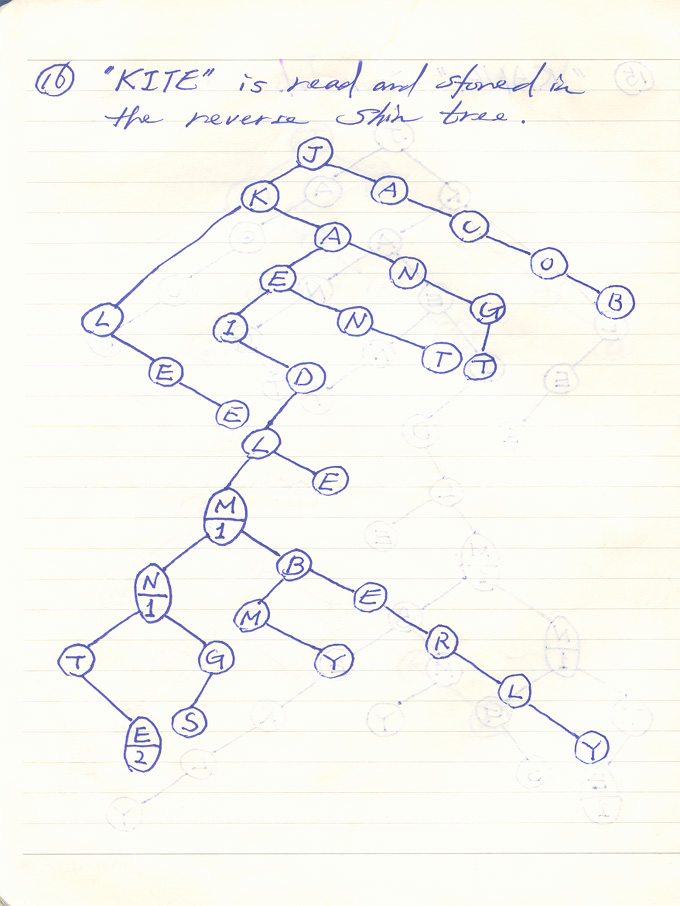 16 "KITE" is read and stored in
the reverse Shin tree.
J
K A
A C
E N O
L I N G B
E D T T
E
L
E
M
1
N B
1 E
M
T G Y R
S L
E
2 Y